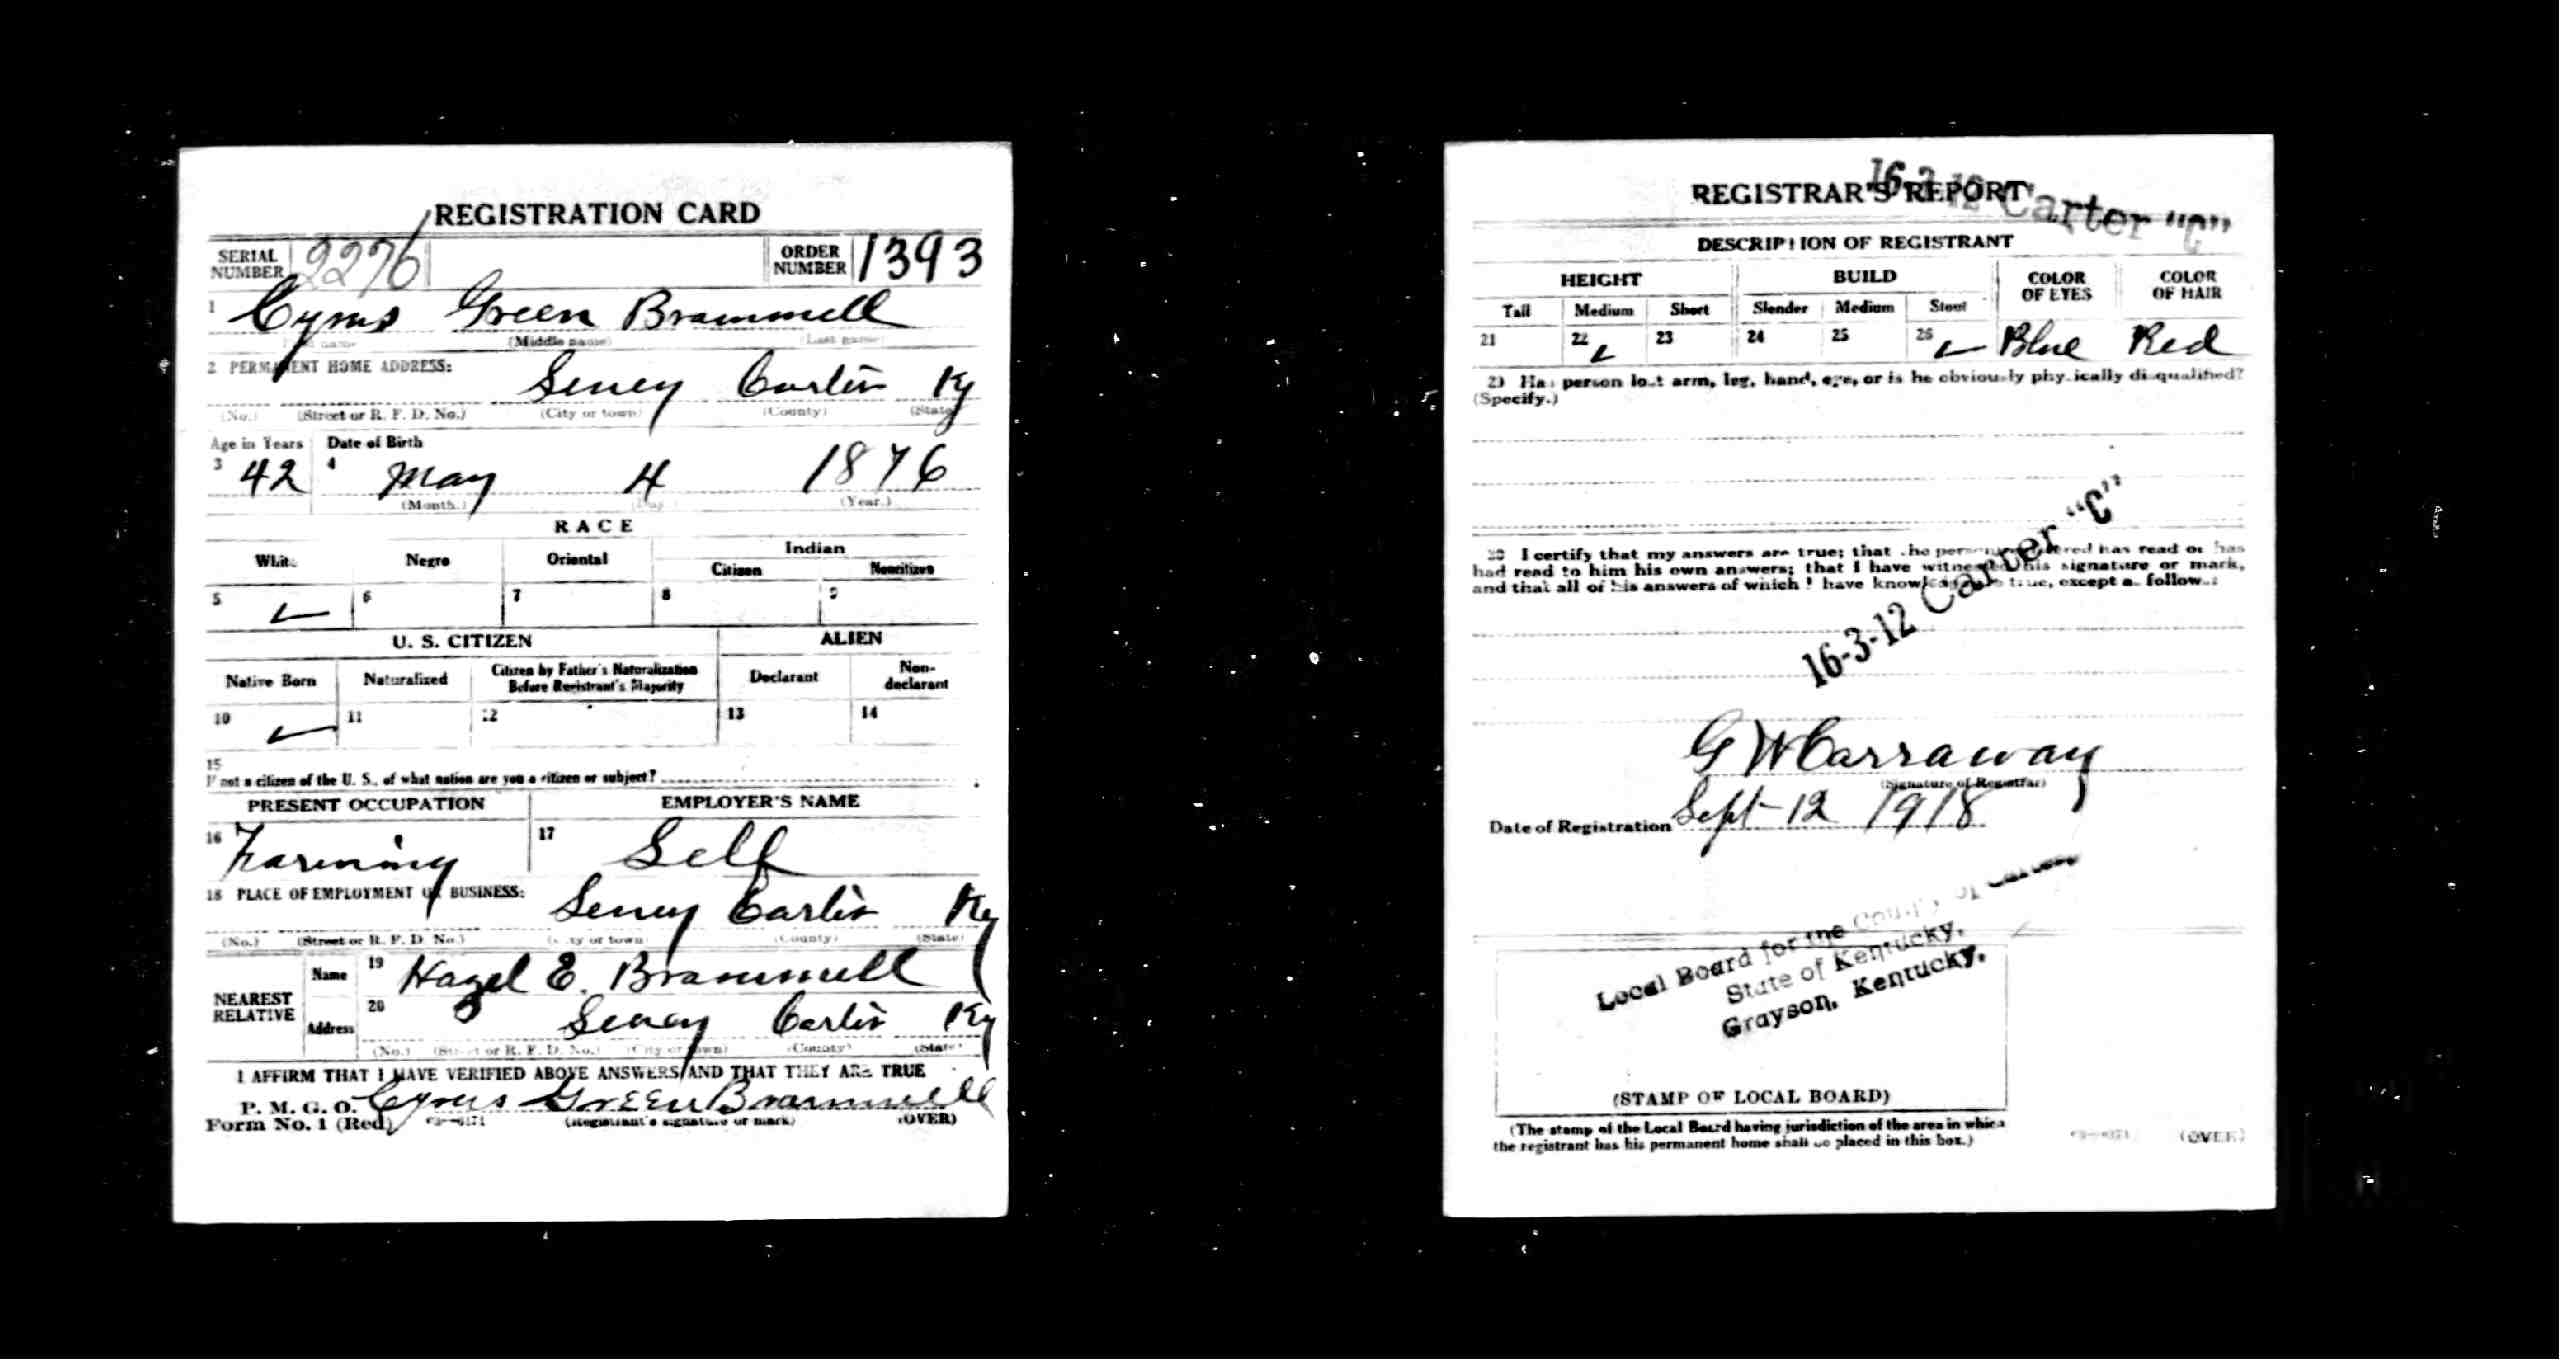 REGISTRATION CARD
SERIAL NUMBER 2276 ORDER NUMBER 1393
1 Cyrus Green Brammell
(Middle name) (Last name)
2 PERMANENT HOME ADDRESS:
Seney Carter Ky
(No.) (Street or R. F. D. No.) (City or town) (County) (State)
Age in Years Date of Birth
3 42 4 May 4 1876
(Month.) (Day.) (Year.)
RACE
White Negro Oriental Indian
Citizen Noncitizen
5 ✓ 6 7 8 9
U. S. CITIZEN ALIEN
Native Born Naturalized Citizen by Father's Naturalization Before Registrant's Majority Declarant Non-declarant
10 ✓ 11 12 13 14
15
If not a citizen of the U. S., of what nation are you a citizen or subject?
PRESENT OCCUPATION EMPLOYER'S NAME
16 Farming 17 Self
18 PLACE OF EMPLOYMENT OR BUSINESS:
Seney Carter Ky
(No.) (Street or R. F. D. No.) (City or town) (County) (State)
NEAREST RELATIVE
Name 19 Hazel E. Brammell
Address 20 Seney Carter Ky
(No.) (Street or R. F. D. No.) (City or town) (County) (State)
I AFFIRM THAT I HAVE VERIFIED ABOVE ANSWERS AND THAT THEY ARE TRUE
P. M. G. O. Cyrus Green Brammell
Form No. 1 (Red) (Registrant's signature or mark) (OVER)
REGISTRAR'S REPORT
16-3-12 Carter "C"
DESCRIPTION OF REGISTRANT
HEIGHT BUILD COLOR OF EYES COLOR OF HAIR
Tall Medium Short Slender Medium Stout
21 22 ✓ 23 24 25 26 ✓ Blue Red
29 Has person lost arm, leg, hand, eye, or is he obviously physically disqualified?
(Specify.)
30 I certify that my answers are true; that the person registered has read or has
had read to him his own answers; that I have witnessed his signature or mark,
and that all of his answers of which I have knowledge are true, except as follows:
16-3-12 Carter "C"
G W Carraway
(Signature of Registrar)
Date of Registration Sept 12 1918
Local Board for the County of Carter,
State of Kentucky,
Grayson, Kentucky.
(STAMP OF LOCAL BOARD)
(The stamp of the Local Board having jurisdiction of the area in which
the registrant has his permanent home shall be placed in this box.)
(OVER)